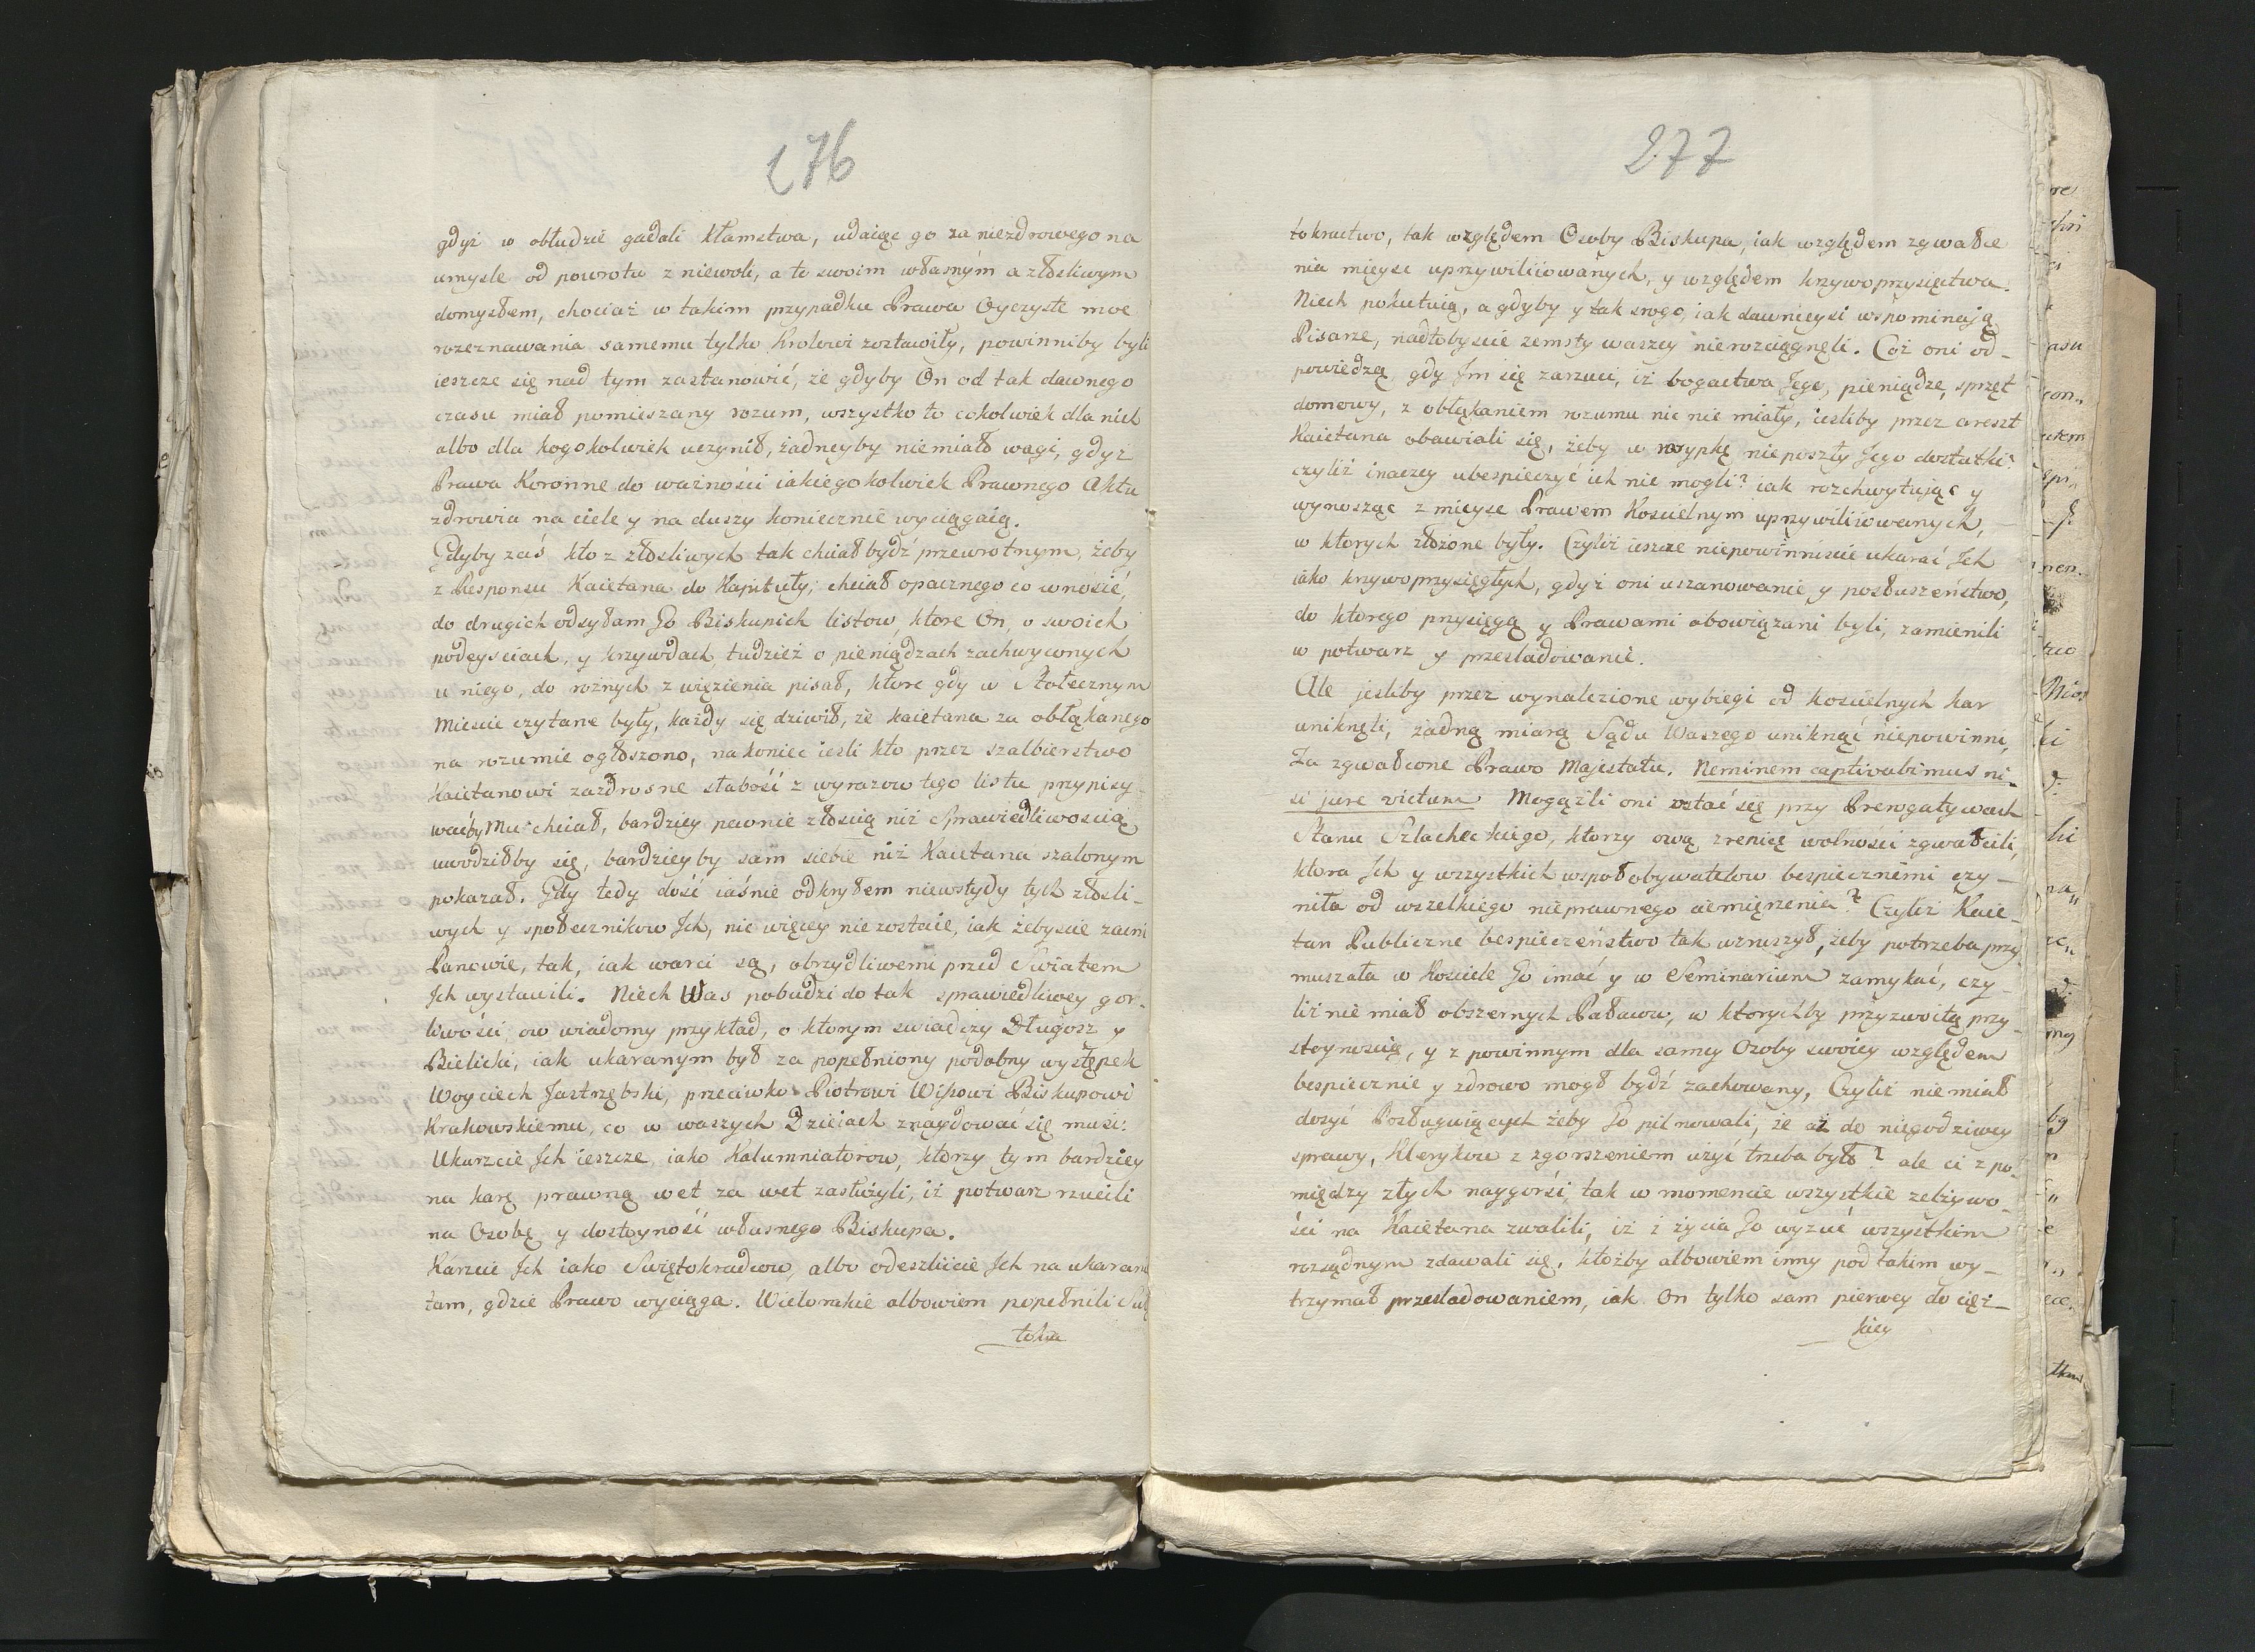 276
gdyż w obłudzie gadali kłamstwa, udaiąc go za niezdrowego na
umysle od powrotu z niewoli, a to swoim własnym a złosliwym
domysłem, chociaż w takim przypadku Prawa Oyczyste moc
rozeznawania samemu tylko Krolowi zostawiły, powinniby byli
ieszcze się nad tym zastanowić, że gdyby On od tak dawnego
czasu miał pomieszany rozum, wszystko to cokolwiek dla nich
albo dla kogokolwiek uczynił, żadneyby niemiało wagi, gdyż
Prawa Koronne do ważności iakiegokolwiek Prawnego Aktu
zdrowia na ciele y na duszy koniecznie wyciągaią.
Gdyby zaś kto z złosliwych tak chciał bydź przewrotnym, żeby
z Responsu Kaietana do Kapituły, chciał opacznego co wnosić,
do drugich odsyłam Go Biskupich listow, ktore On, o swoich
podeysciach, y krzywdach, tudzież o pieniądzach zachwyconych
u niego, do rożnych z więzienia pisał, ktore gdy w Stołecznym
Miescie czytane były, każdy się dziwił, że Kaietana za obłąkanego
na rozumie ogłoszono, nakoniec iesli kto przez szalbierstwo
Kaietanowi zazdrosne słabość z wyrazow tego listu przypisy-
waćby Mu chciał, bardziey pewnie złością niż Sprawiedliwością
uwodziłby się, bardzieyby sam siebie niż Kaietana szalonym
pokazał. Gdy tedy dość iaśnie odkryłem niewstydy tych złosli-
wych y społecznikow Ich, nic więcey nie zostaie, iak żebyscie zacni
Panowie, tak, iak warci są, obrzydliwemi przed Swiatem
Ich wystawili. Niech Was pobudzi do tak sprawiedliwey gor-
liwości ow wiadomy przykład, o ktorym swiadczy Długosz y
Bielicki, iak ukaranym był za popełniony podobny występek
Woyciech Jastrzębski, przeciwko Piotrowi Wiszowi Biskupowi
Krakowskiemu, co w waszych Dzieiach znaydować się musi:
Ukarzcie Ich ieszcze iako Kalumniatorow, ktorzy tym bardziey
na karę prawną wet za wet zasłużyli, iż potwarz rzucili
na Osobę y dostoyność własnego Biskupa.
Karzcie Ich iako Swiętokradcow, albo odeszliicie Ich na ukaranie
tam, gdzie Prawo wyciąga. Wielorakie albowiem popełnili Swię
tokra
277
tokractwo, tak względem Osoby Biskupa, iak względem zgwałce
nia mieysc uprzywiliiowanych, y względem krzywoprzysięctwa.
Niech pokutuią, a gdyby y tak srogo, iak dawnieysi wspominaią
Pisarze, nadtobyscie zemsty waszey nierozciągnęli. Coż oni od-
powiedzą, gdy Im się zarzuci, iż bogactwa Jego, pieniądze, sprzęt
domowy, z obłąkaniem rozumu nic nie miały, iesliby przez areszt
Kaietana obawiali się, żeby w rozypkę nieposzły Jego dostatki:
czyliż inaczey ubespieczyć ich nie mogli? iak rozchwytując y
wynosząc z mieysc Prawem Koscielnym uprzywiliiowanych,
w ktorych złożone były. Czyliż ieszcze niepowinniscie ukarać Ich
iako krzywoprzysięgłych, gdyż oni uszanowanie, y posłuszeństwo,
do ktorego przysięgą y Prawami obowiązani byli, zamienili
w potwarz y przesladowanie.
Ale jesliby przez wynalezione wybiegi od koscielnych kar
uniknęli, żadną miarą Sądu Waszego uniknąć niepowinni,
Za zgwałcone Prawo Majestatu. Neminem captivabimus ni-
si jure victum Mogąźli oni ostać się przy Prerogatywach
Stanu Szlacheckiego, ktorzy ową zrenicę wolności zgwałcili,
ktora Ich y wszystkich wspołobywatelow bespiecznemi czy-
niła od wszelkiego nieprawnego ciemiężenia? Czyliż Kaie-
tan Publiczne bespieczeństwo tak wzruszył, żeby potrzeba przy
muszała w Kosciele Go imać y w Seminarium zamykać, czy-
liż nie miał obszernych Pałacow, w ktorychby przyzwoitą przy-
stoynoscią, y z powinnym dla samey Osoby swoiey względem
bespiecznie y zdrowo mogł bydź zachowany, Czyliż niemiał
dosyć Posługuiących żeby Go pilnowali, że aż do niegodziwey
sprawy, Klerykow z zgorszeniem użyć trzeba było? ale ci z po-
między złych naygorśi, tak w momencie wszystkie zelżywo-
ści na Kaietana zwalili, iż z życia Go wyzuć wszystkim
rozsądnym zdawali się. ktożby albowiem inny pod takim wy-
trzymał przesladowaniem, iak On tylko sam pierwey do cięż-
kiey